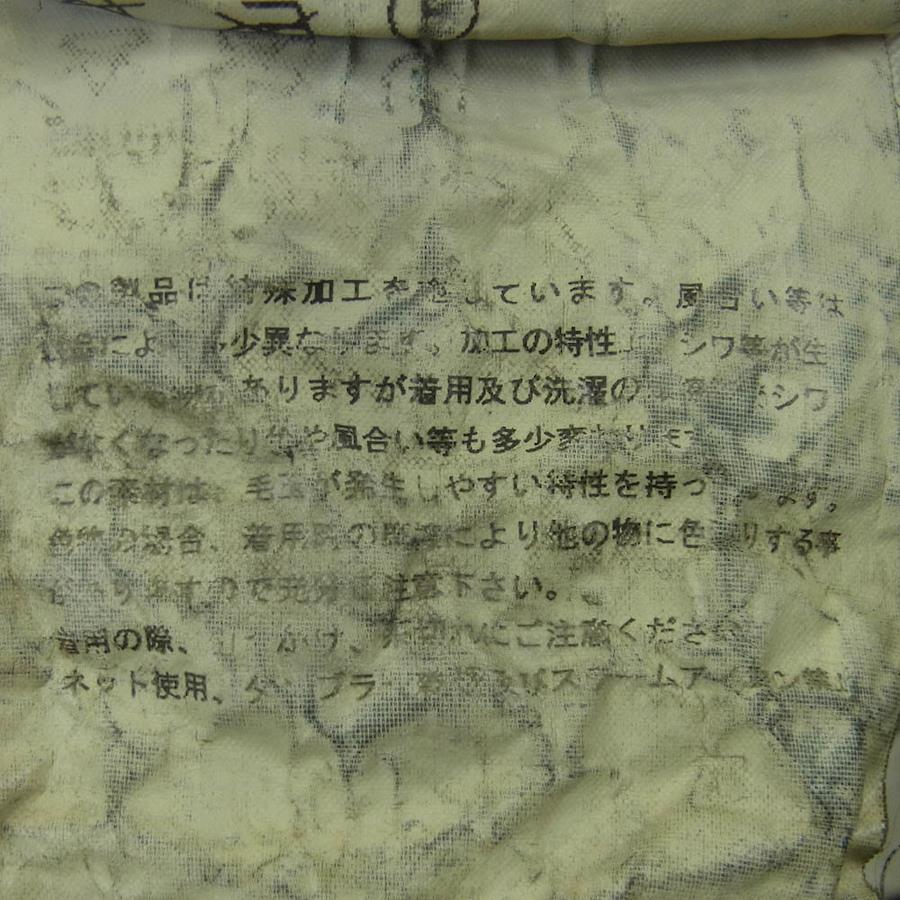 この製品は特殊加工を施しています。風合い等は
製品によ 多少異なります。加工の特性 シワ等が生
じてい ありますが着用及び洗濯の シワ
がなくなったり色や風合い等も多少変わります
この素材は 毛玉が発生しやすい特性を持っ ます。
色物の場合、着用時の摩擦により他の物に色 りする事
がありますので充分 注意下さい。
着用の際、 かけ、 切れにご注意くださ
ネット使用、タンブラー 及びスチームアイロン等